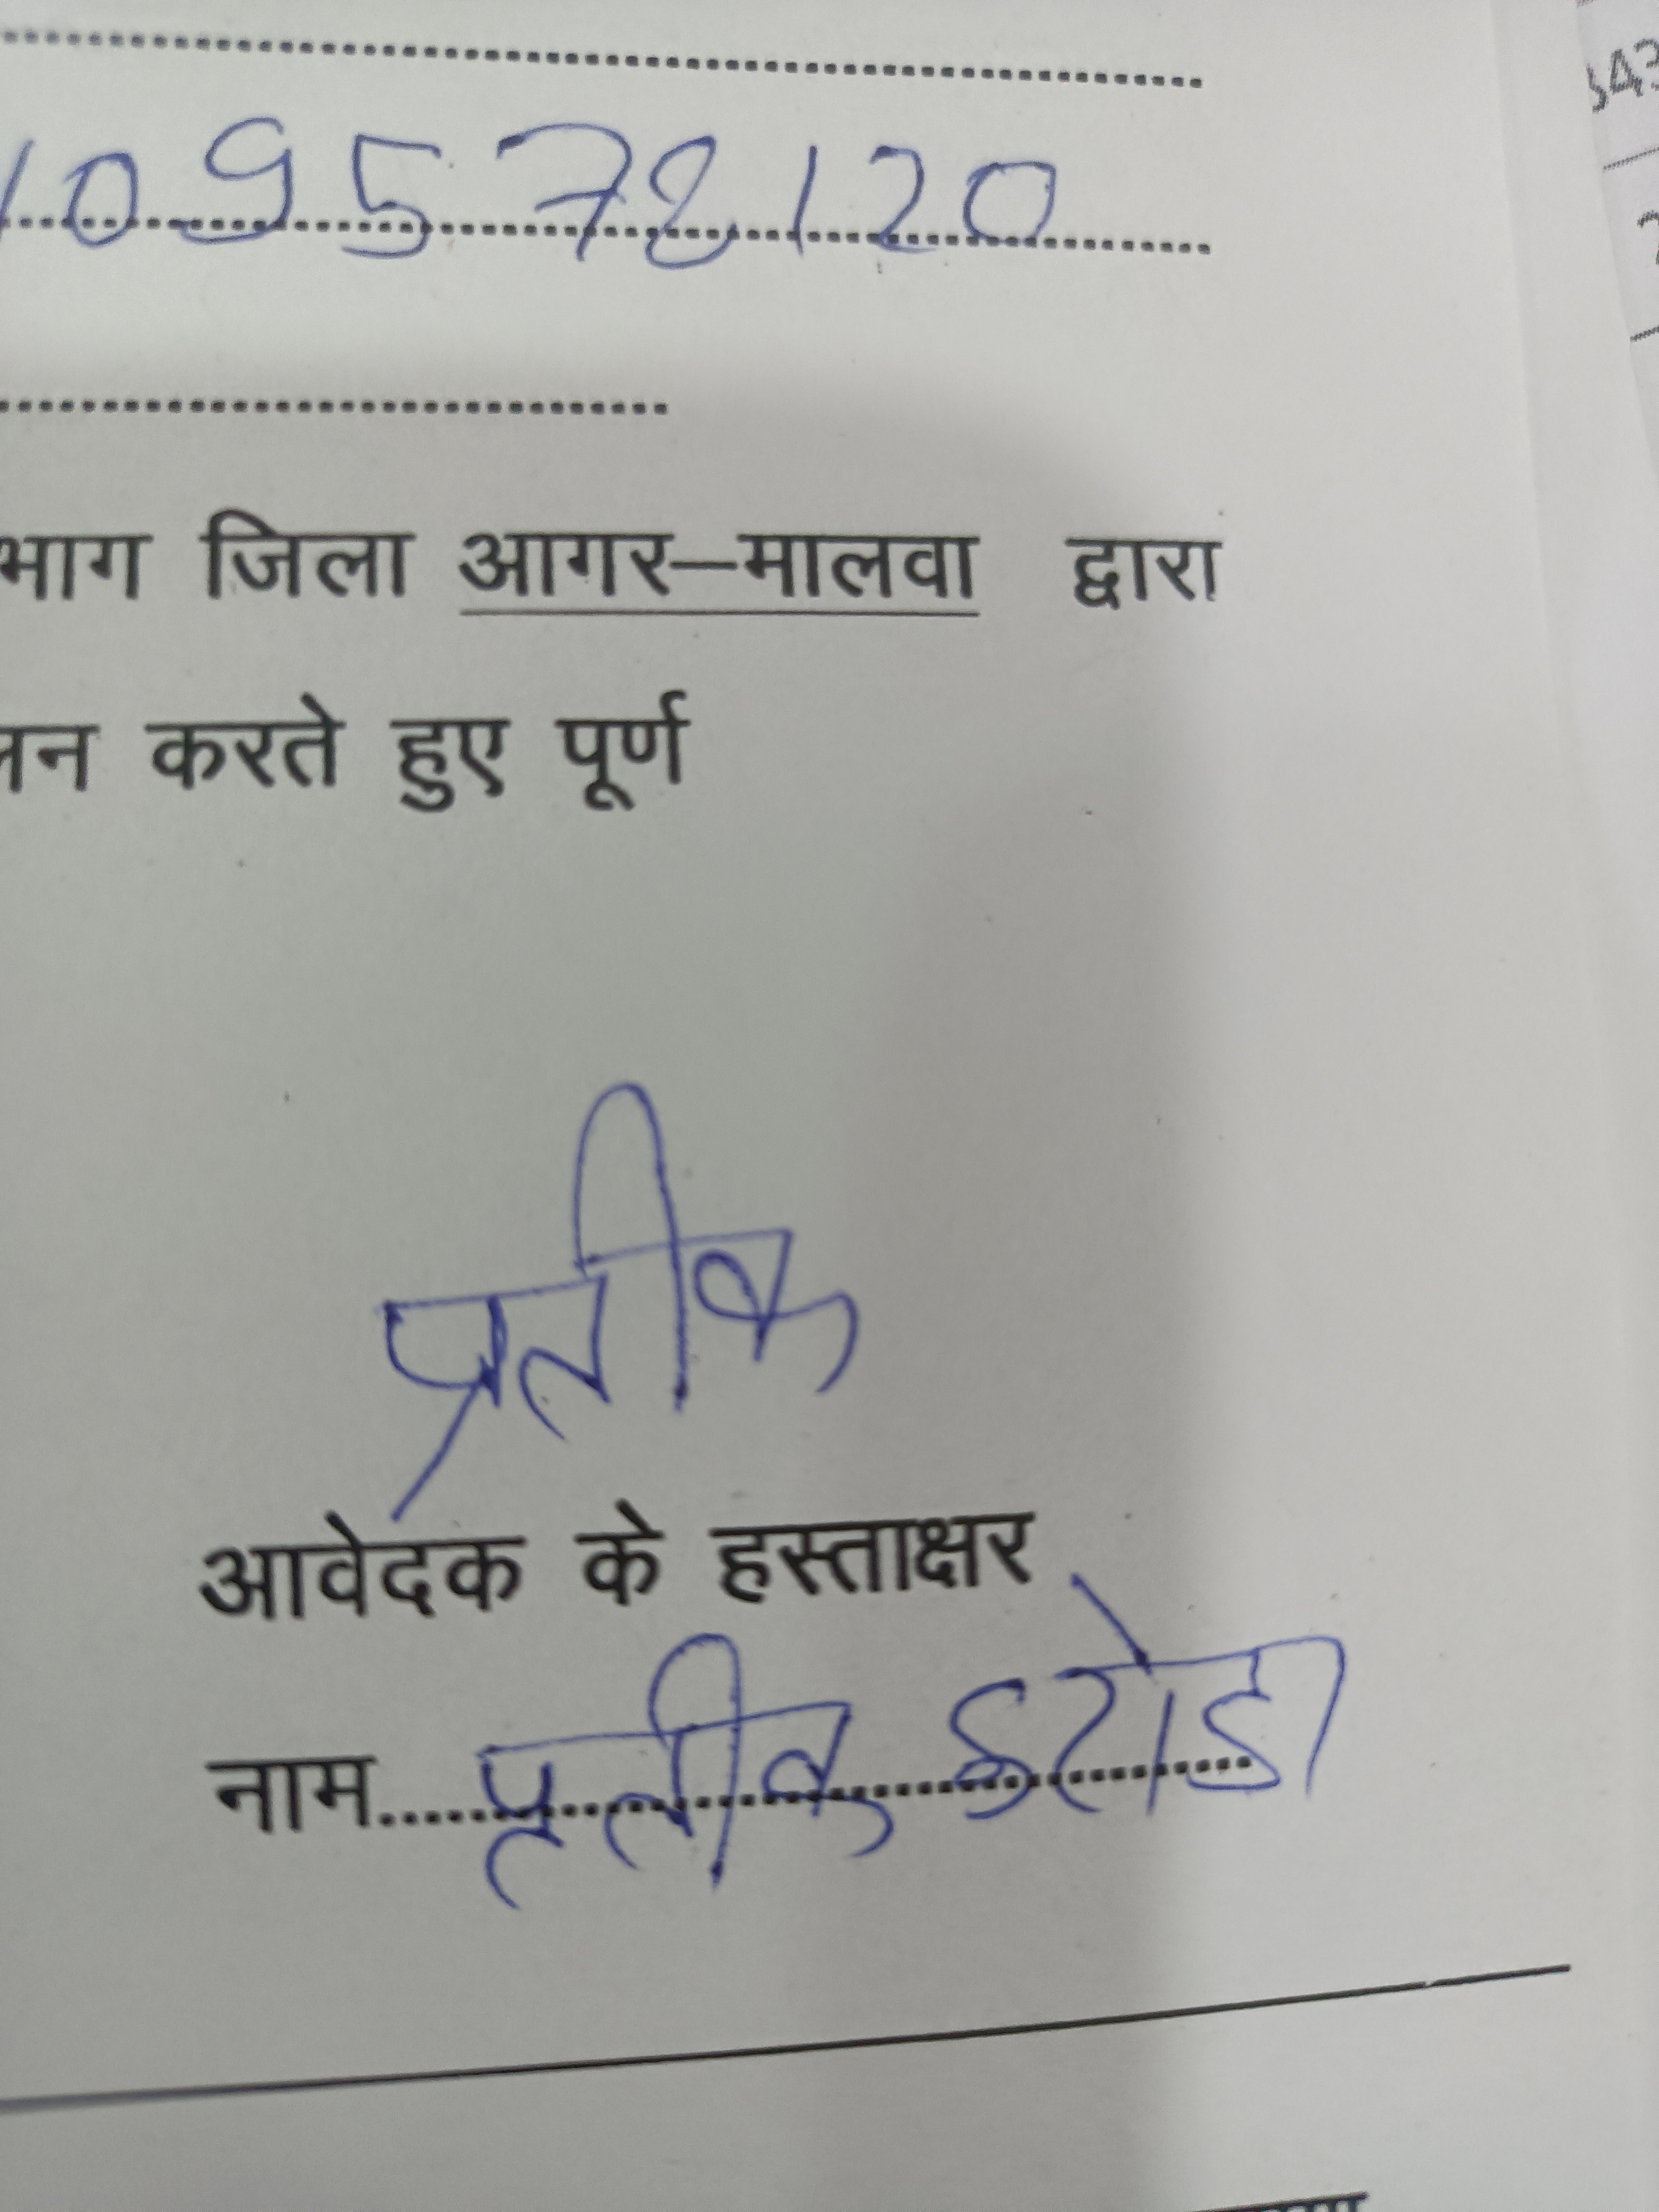 109578120
भाग जिला आगर–मालवा द्वारा
करते हुए पूर्ण
प्रतीक
आवेदक के हस्ताक्षर
नाम प्रतीक